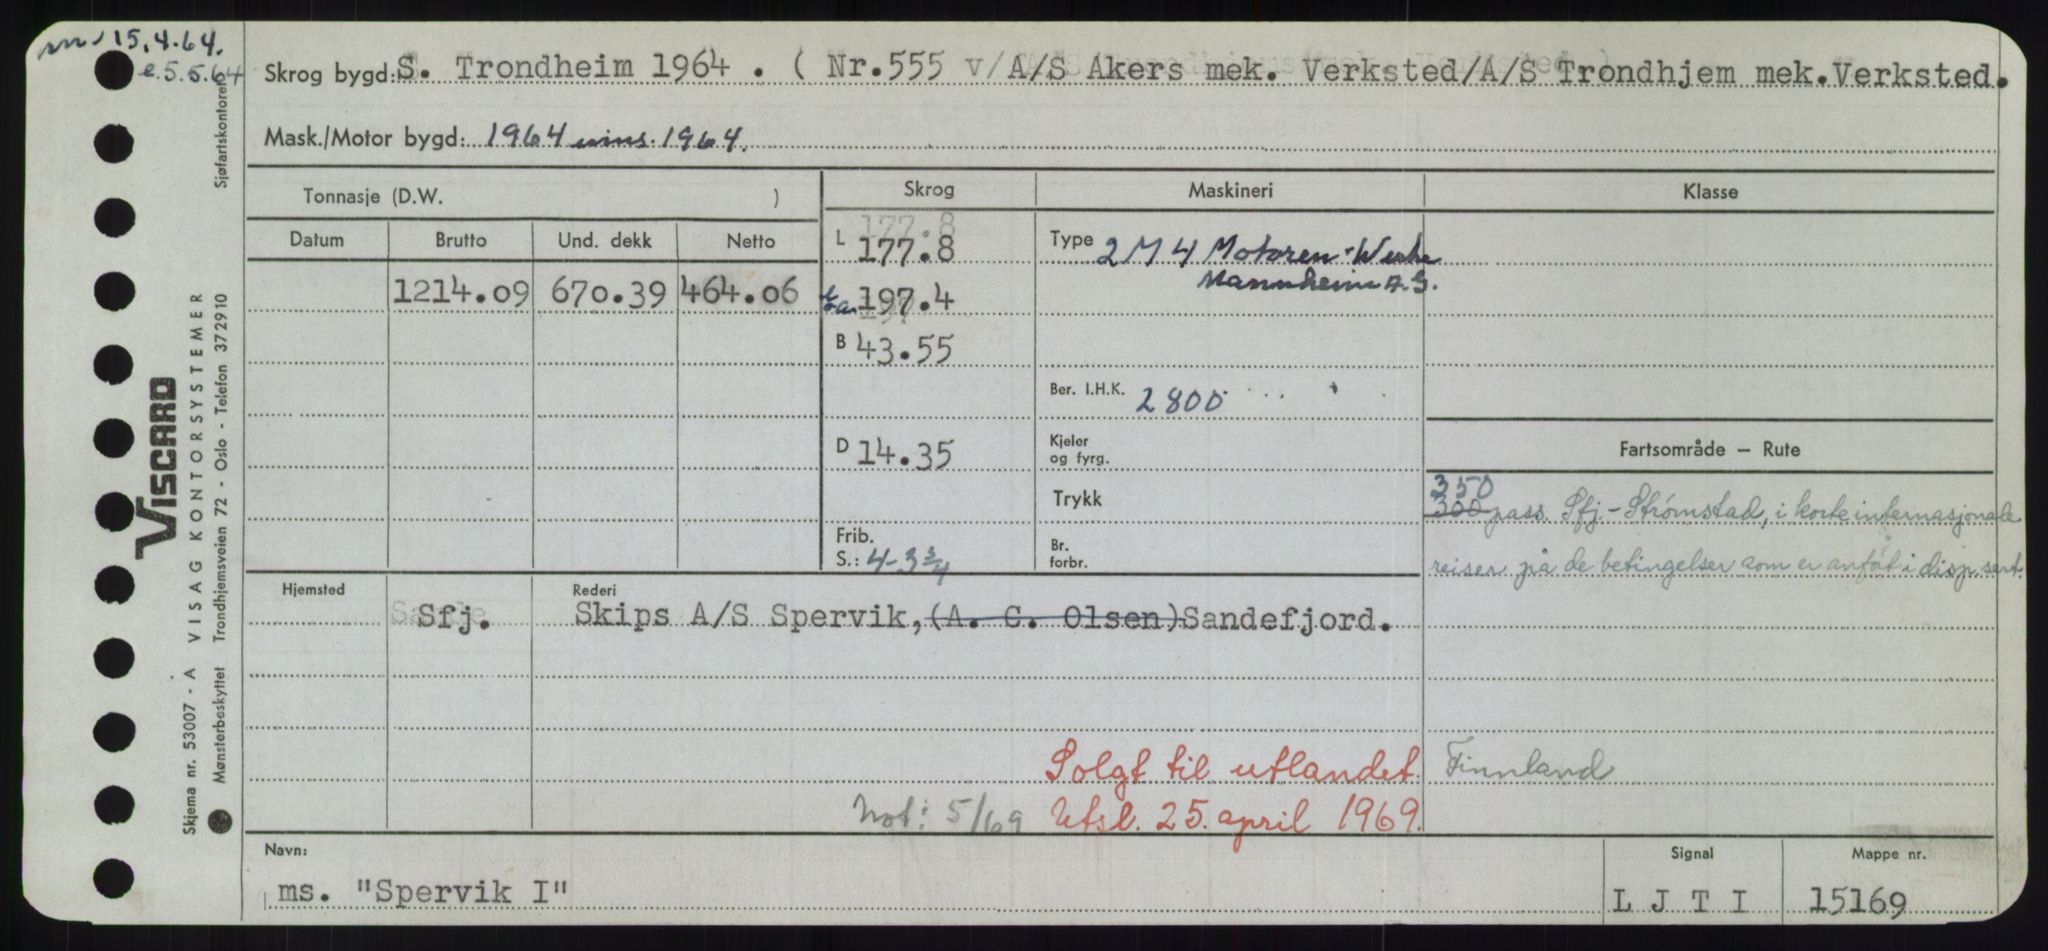 15.4.64.
e.5.5.64
Skrog bygd: S. Trondheim 1964 . ( Nr.555 v/A/S Akers mek. Verksted/A/S Trondhjem mek.Verksted.
Mask./Motor bygd: 1964 1964.
Tonnasje (D.W. )
Skrog
Maskineri
Klasse
Datum
Brutto
Und. dekk
Netto
1214.09
670.39
464.06
L 177.8
177.8
197.4
B 43.55
D 14.35
Frib.
S.: 4-3 3/4
Type 2 M 4 Motoren-Werke
Mannheim A.G.
Ber. I.H.K. 2800
Kjeler
og fyrg.
Trykk
Br.
forbr.
Fartsområde – Rute
350
300 pass. Sfj.-Strømstad, i korte internasjonale
reiser på de betingelser som er anført i disp sert.
Hjemsted
Rederi
Sfj.
Skips A/S Spervik,(A. C. Olsen)Sandefjord.
Solgt til utlandet. Finnland
Not: 5/69 Utsl. 25. april 1969.
Navn:
ms. "Spervik I"
Signal
L J T I
Mappe nr.
15169
VISCARD
Skjema nr. 53007 - A VISAG KONTORSYSTEMER
Mønsterbeskyttet Trondhjemsveien 72 - Oslo - Telefon 372910 Sjøfartskontoret